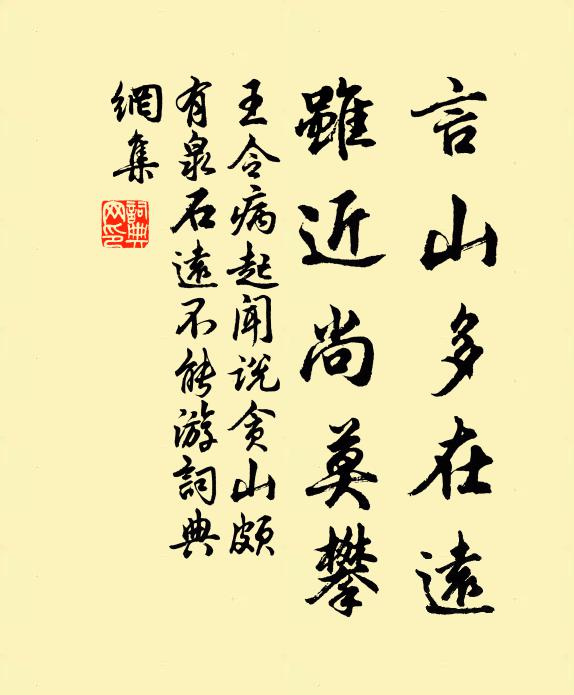 言山多在遠
雖近尚莫攀
王令病起聞説貪山頗
有泉石遠不能游詞典
網集
詞典
网印